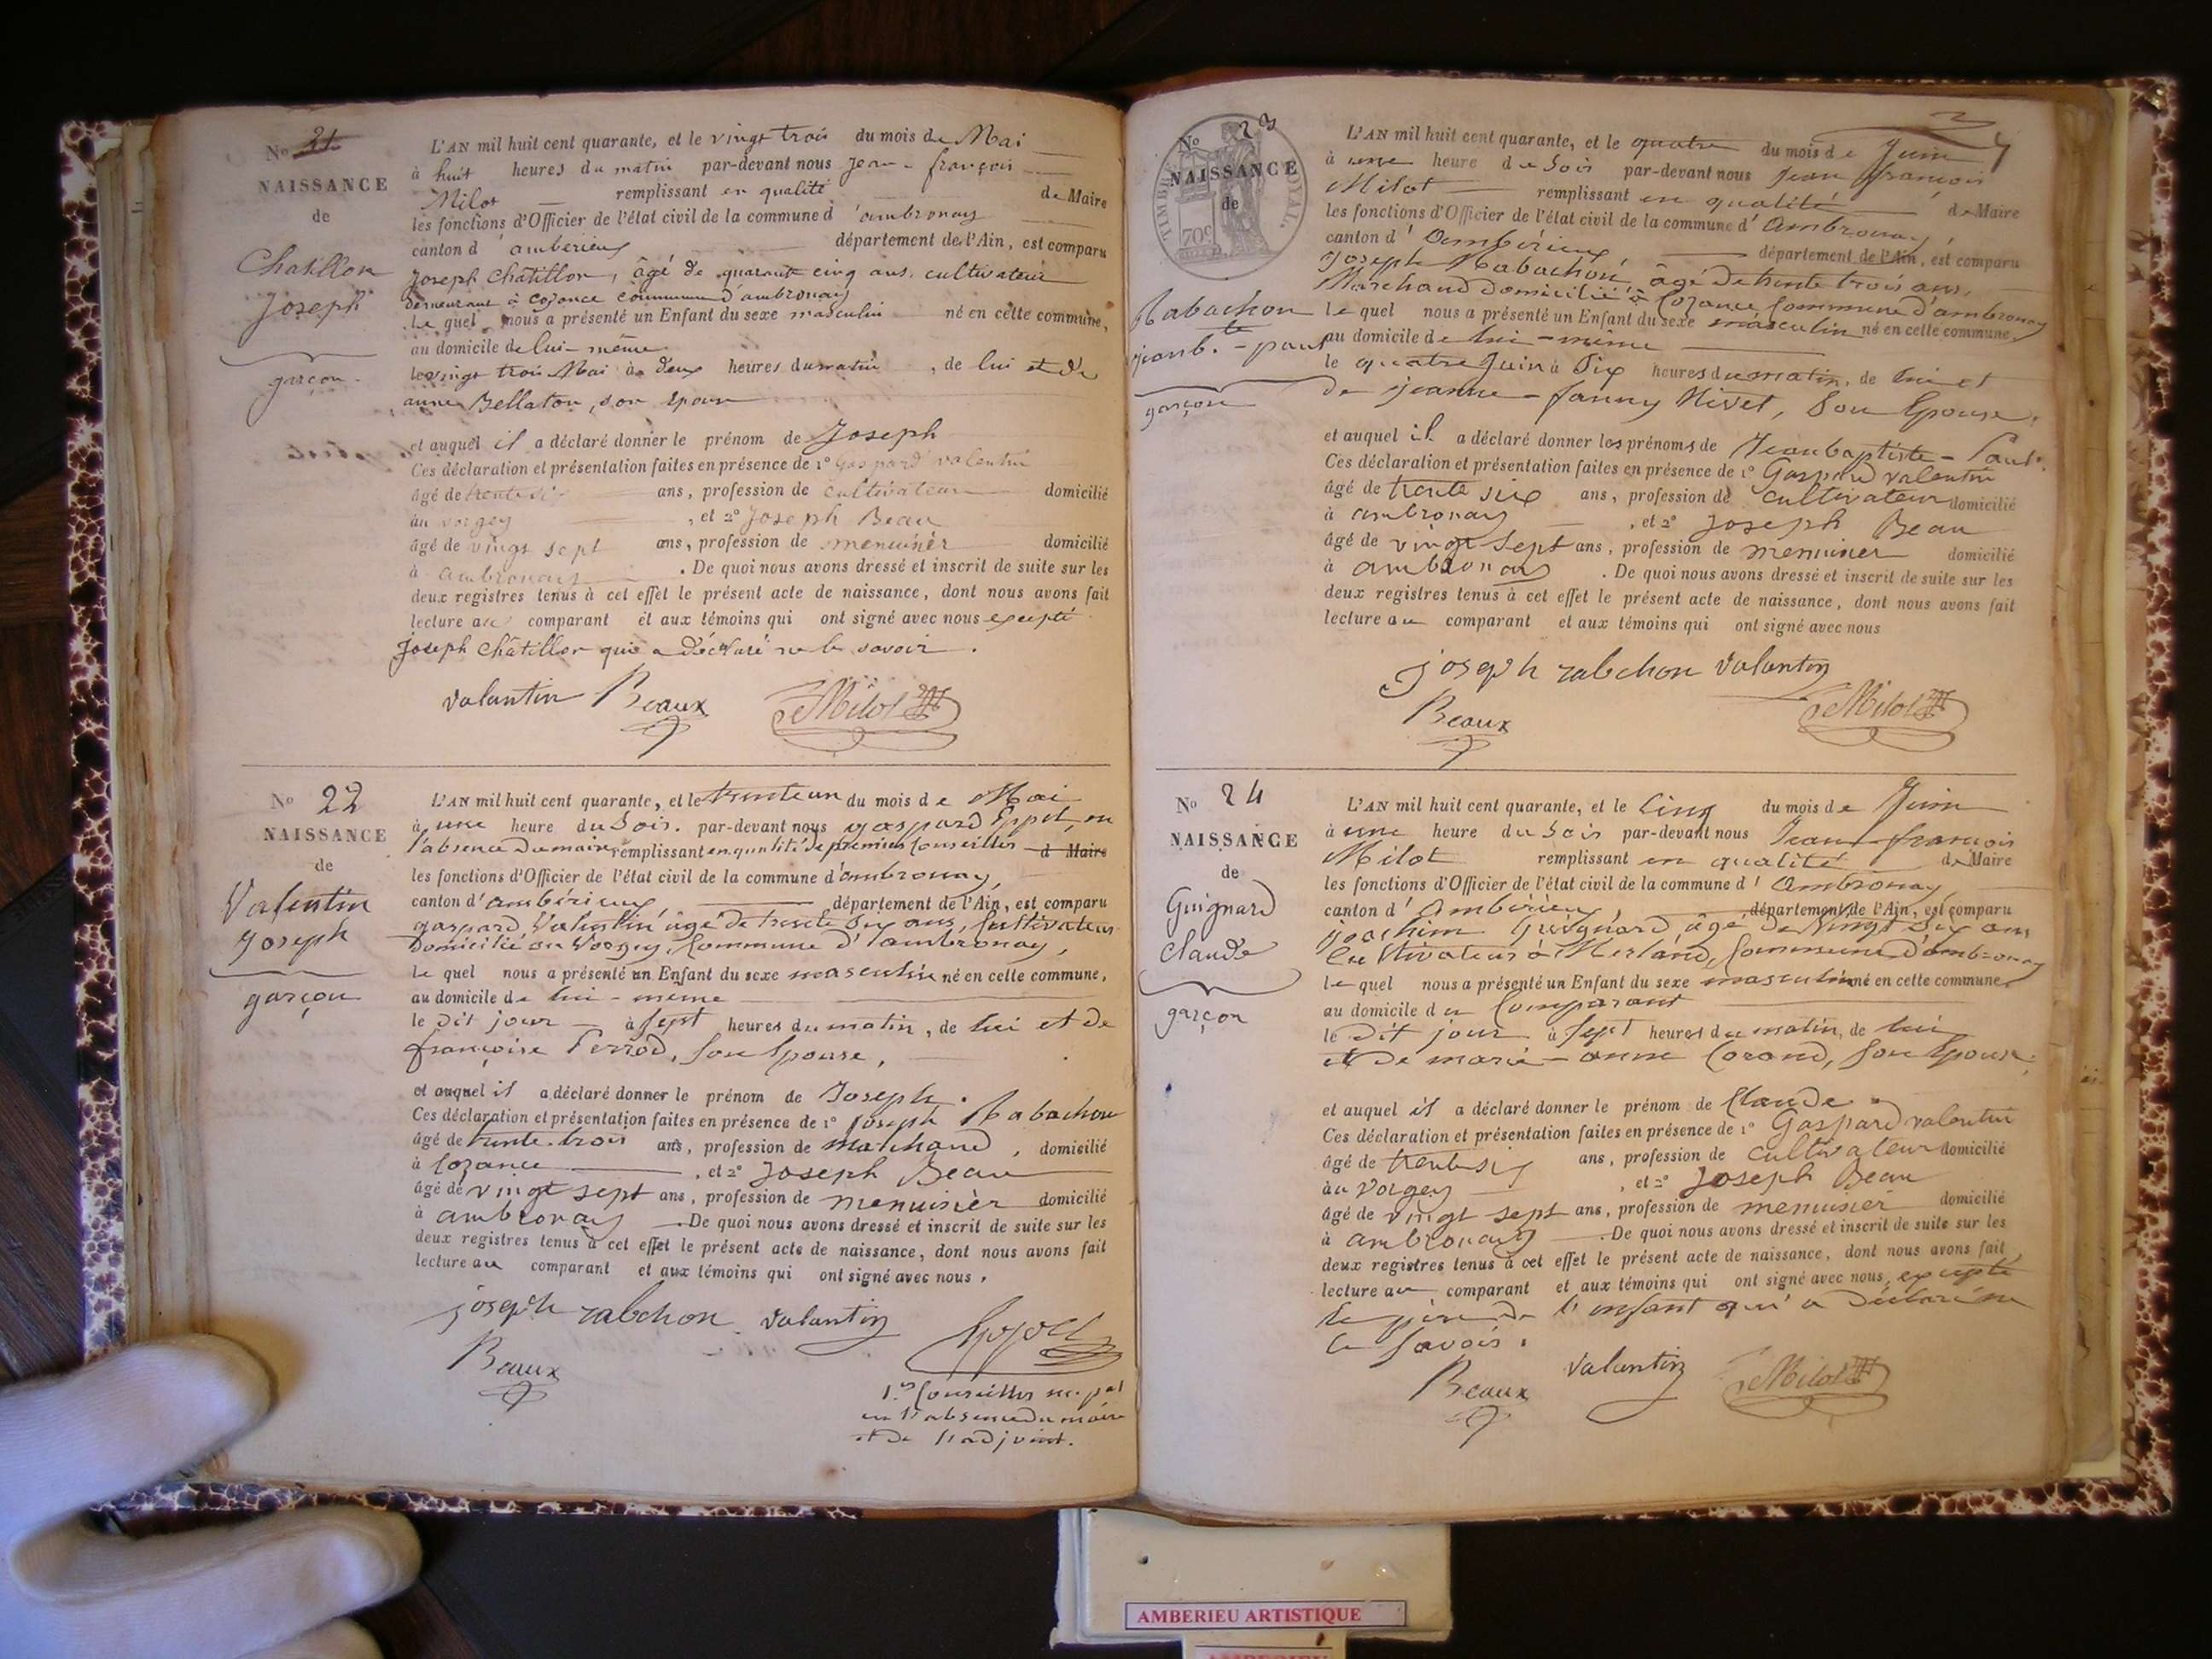 No 21
NAISSANCE
de
Chatillon
Joseph
garçon.
L'AN mil huit cent quarante, et le vingt trois du mois de Mai
à huit heures du matin par-devant nous jean-françois
Milot remplissant en qualité de Maire
les fonctions d'Officier de l'état civil de la commune d'ambronay
canton d'ambérieux département de l'Ain, est comparu
Joseph Chatillon, âgé de quarante cinq ans, cultivateur
demeurant à cozance commune d'ambronay
Le quel nous a présenté un Enfant du sexe masculin né en cette commune,
au domicile de lui-même
le vingt trois Mai à deux heures du matin, de lui et de
anne Bellaton, son épouse
et auquel il a déclaré donner le prénom de Joseph
Ces déclaration et présentation faites en présence de 1° Gaspard valentin
âgé de trente six ans, profession de cultivateur domicilié
au vorgey, et 2° Joseph Beau
âgé de vingt sept ans, profession de menuisier domicilié
à ambronay. De quoi nous avons dressé et inscrit de suite sur les
deux registres tenus à cet effet le présent acte de naissance, dont nous avons fait
lecture au comparant et aux témoins qui ont signé avec nous excepté
Joseph Châtillon qui a déclaré ne le savoir.
valantin Beaux Milot
No 22
NAISSANCE
de
Valentin
Joseph
garçon
L'AN mil huit cent quarante, et le trente un du mois de Mai
à une heure du Soir. par-devant nous gaspard en
l'absence du maire remplissant en qualité de premier Conseiller d Maire
les fonctions d'Officier de l'état civil de la commune d'ambronay,
canton d'ambérieux, département de l'Ain, est comparu
gaspard Valentin âgé de trente Six ans, Cultivateur
Domicilié au Vorgey, Commune d'ambronay,
Le quel nous a présenté un Enfant du sexe masculin né en cette commune,
au domicile de lui-même
le dit jour à Sept heures du matin, de lui et de
françoise Perrod, Son Epouse,
et auquel il a déclaré donner le prénom de Joseph.
Ces déclaration et présentation faites en présence de 1° Joseph Rabachon
âgé de trente-trois ans, profession de Marchand, domicilié
à Cozance, et 2° Joseph Beau
âgé de vingt sept ans, profession de menuisier domicilié
à ambronay. De quoi nous avons dressé et inscrit de suite sur les
deux registres tenus à cet effet le présent acte de naissance, dont nous avons fait
lecture au comparant et aux témoins qui ont signé avec nous.
joseph rabchon valantin
Beaux
1.er Conseiller m.pal
en l'absence du maire
et de l'adjoint.
No 23
NAISSANCE
de
TIMBRE ROYAL.
70c
Rabachon
jean b.te-paul
garçon
L'AN mil huit cent quarante, et le quatre du mois de Juin
à une heure du Soir par-devant nous Jean françois
Milot remplissant en qualité de Maire
les fonctions d'Officier de l'état civil de la commune d'Ambronay,
canton d'Ambérieux département de l'Ain, est comparu
Joseph Rabachon âgé de trente trois ans,
Marchand domicilié à Cozance, Commune d'ambronay
Le quel nous a présenté un Enfant du sexe masculin né en cette commune,
au domicile de lui-même
le quatre Juin à Six heures du matin, de lui et
de jeanne-fanny Nivet, Son Epouse.
et auquel il a déclaré donner les prénoms de Jean baptiste-Paul.
Ces déclaration et présentation faites en présence de 1° Gaspard valentin
âgé de trente six ans, profession de cultivateur domicilié
à ambronay, et 2° Joseph Beau
âgé de vingt Sept ans, profession de menuisier domicilié
à ambronay. De quoi nous avons dressé et inscrit de suite sur les
deux registres tenus à cet effet le présent acte de naissance, dont nous avons fait
lecture au comparant et aux témoins qui ont signé avec nous
joseph rabchon valantin
Beaux Milot
No 24
NAISSANCE
de
Guignard
Claude
garçon
L'AN mil huit cent quarante, et le Cinq du mois de Juin
à une heure du Soir par-devant nous Jean-françois
Milot remplissant en qualité de Maire
les fonctions d'Officier de l'état civil de la commune d'Ambronay
canton d'Ambérieux, département de l'Ain, est comparu
joachim Guignard, âgé de Vingt Six ans
Cultivateur à Merland, Commune d'ambronay
Le quel nous a présenté un Enfant du sexe masculin né en cette commune,
au domicile du Comparant
le dit jour à Sept heures du matin, de lui
et de marie-anne Corand, Son Epouse.
et auquel il a déclaré donner le prénom de Claude.
Ces déclaration et présentation faites en présence de 1° Gaspard valentin
âgé de trente six ans, profession de cultivateur domicilié
au Vorgey, et 2° Joseph Beau
âgé de vingt sept ans, profession de menuisier domicilié
à ambronay. De quoi nous avons dressé et inscrit de suite sur les
deux registres tenus à cet effet le présent acte de naissance, dont nous avons fait
lecture au comparant et aux témoins qui ont signé avec nous, excepté
le père de l'enfant qui a déclaré ne
le Savoir.
Beaux valantin Milot
AMBERIEU ARTISTIQUE
AMBERIEU